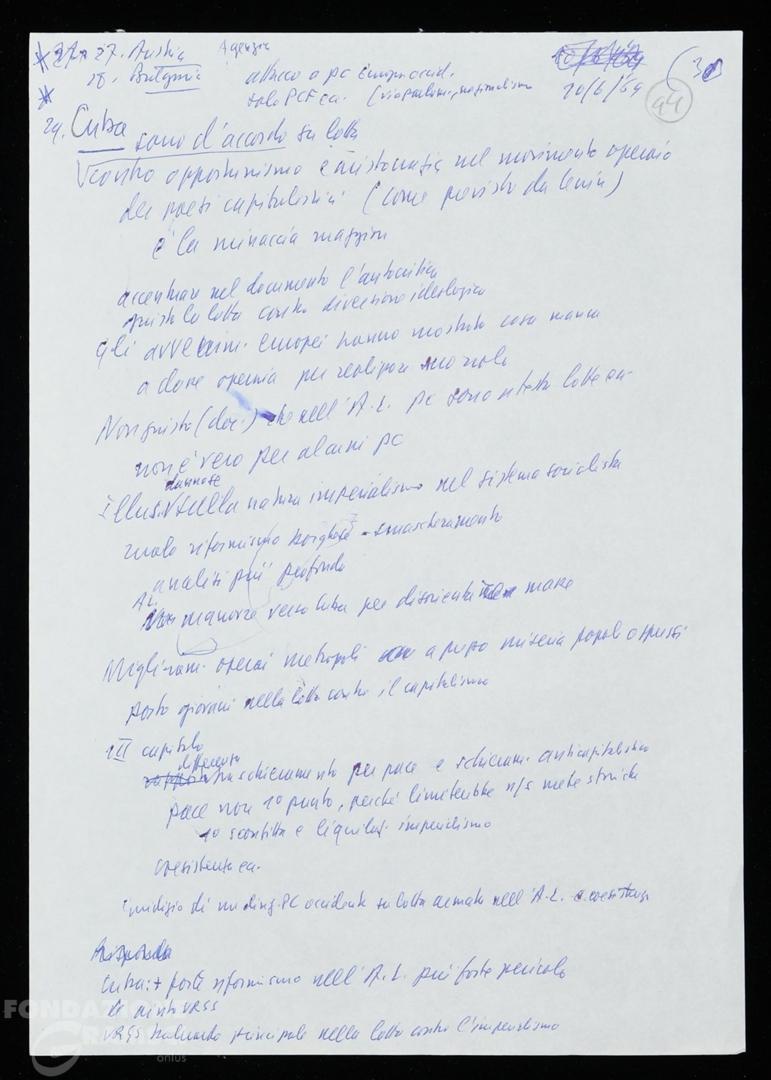 27. Austria Agenzia
28. Bulgaria attacco a pc Europa occid.
solo PCF ca. 20/6/69 94 30
29. Cuba sono d'accordo su lotta
contro opportunismo e nel movimento operaio
dei paesi capitalistici (come previsto da Lenin)
è la minaccia maggiore
accentuare nel documento l'autocritica
giusta la lotta contro diversione ideologica
gli avvenim. europei hanno mostrato cosa manca
a classe operaia per realizzare suo ruolo
Non giusto (doc.) che nell'A.L. pc sono a testa lotte
non è vero per alcuni pc
Illus. sulla natura imperialismo nel sistema socialista
ruolo riformismo borghese - smascheramento
analisi più profonda
AL
manovre verso Cuba per masse
Miglioram. operai metropoli a prezzo miseria popoli oppressi
posto giovani nella lotta contro il capitalismo
III capitolo
differenza
tra schieramento per pace e schieram. anticapitalistico
pace non 1° punto, perché limiterebbe n/s mete storiche
1° sconfitta e liquidaz. imperialismo
coesistenza.
giudizio di un dirig. PC occidente su lotta armata nell'A.L. e coesistenza
Risponde
Cuba: + forte riformismo nell'A.L. più forte pericolo
di aiuto URSS
URSS baluardo principale nella lotta contro l'imperialismo
FONDAZIONE
GRAMSCI
onlus